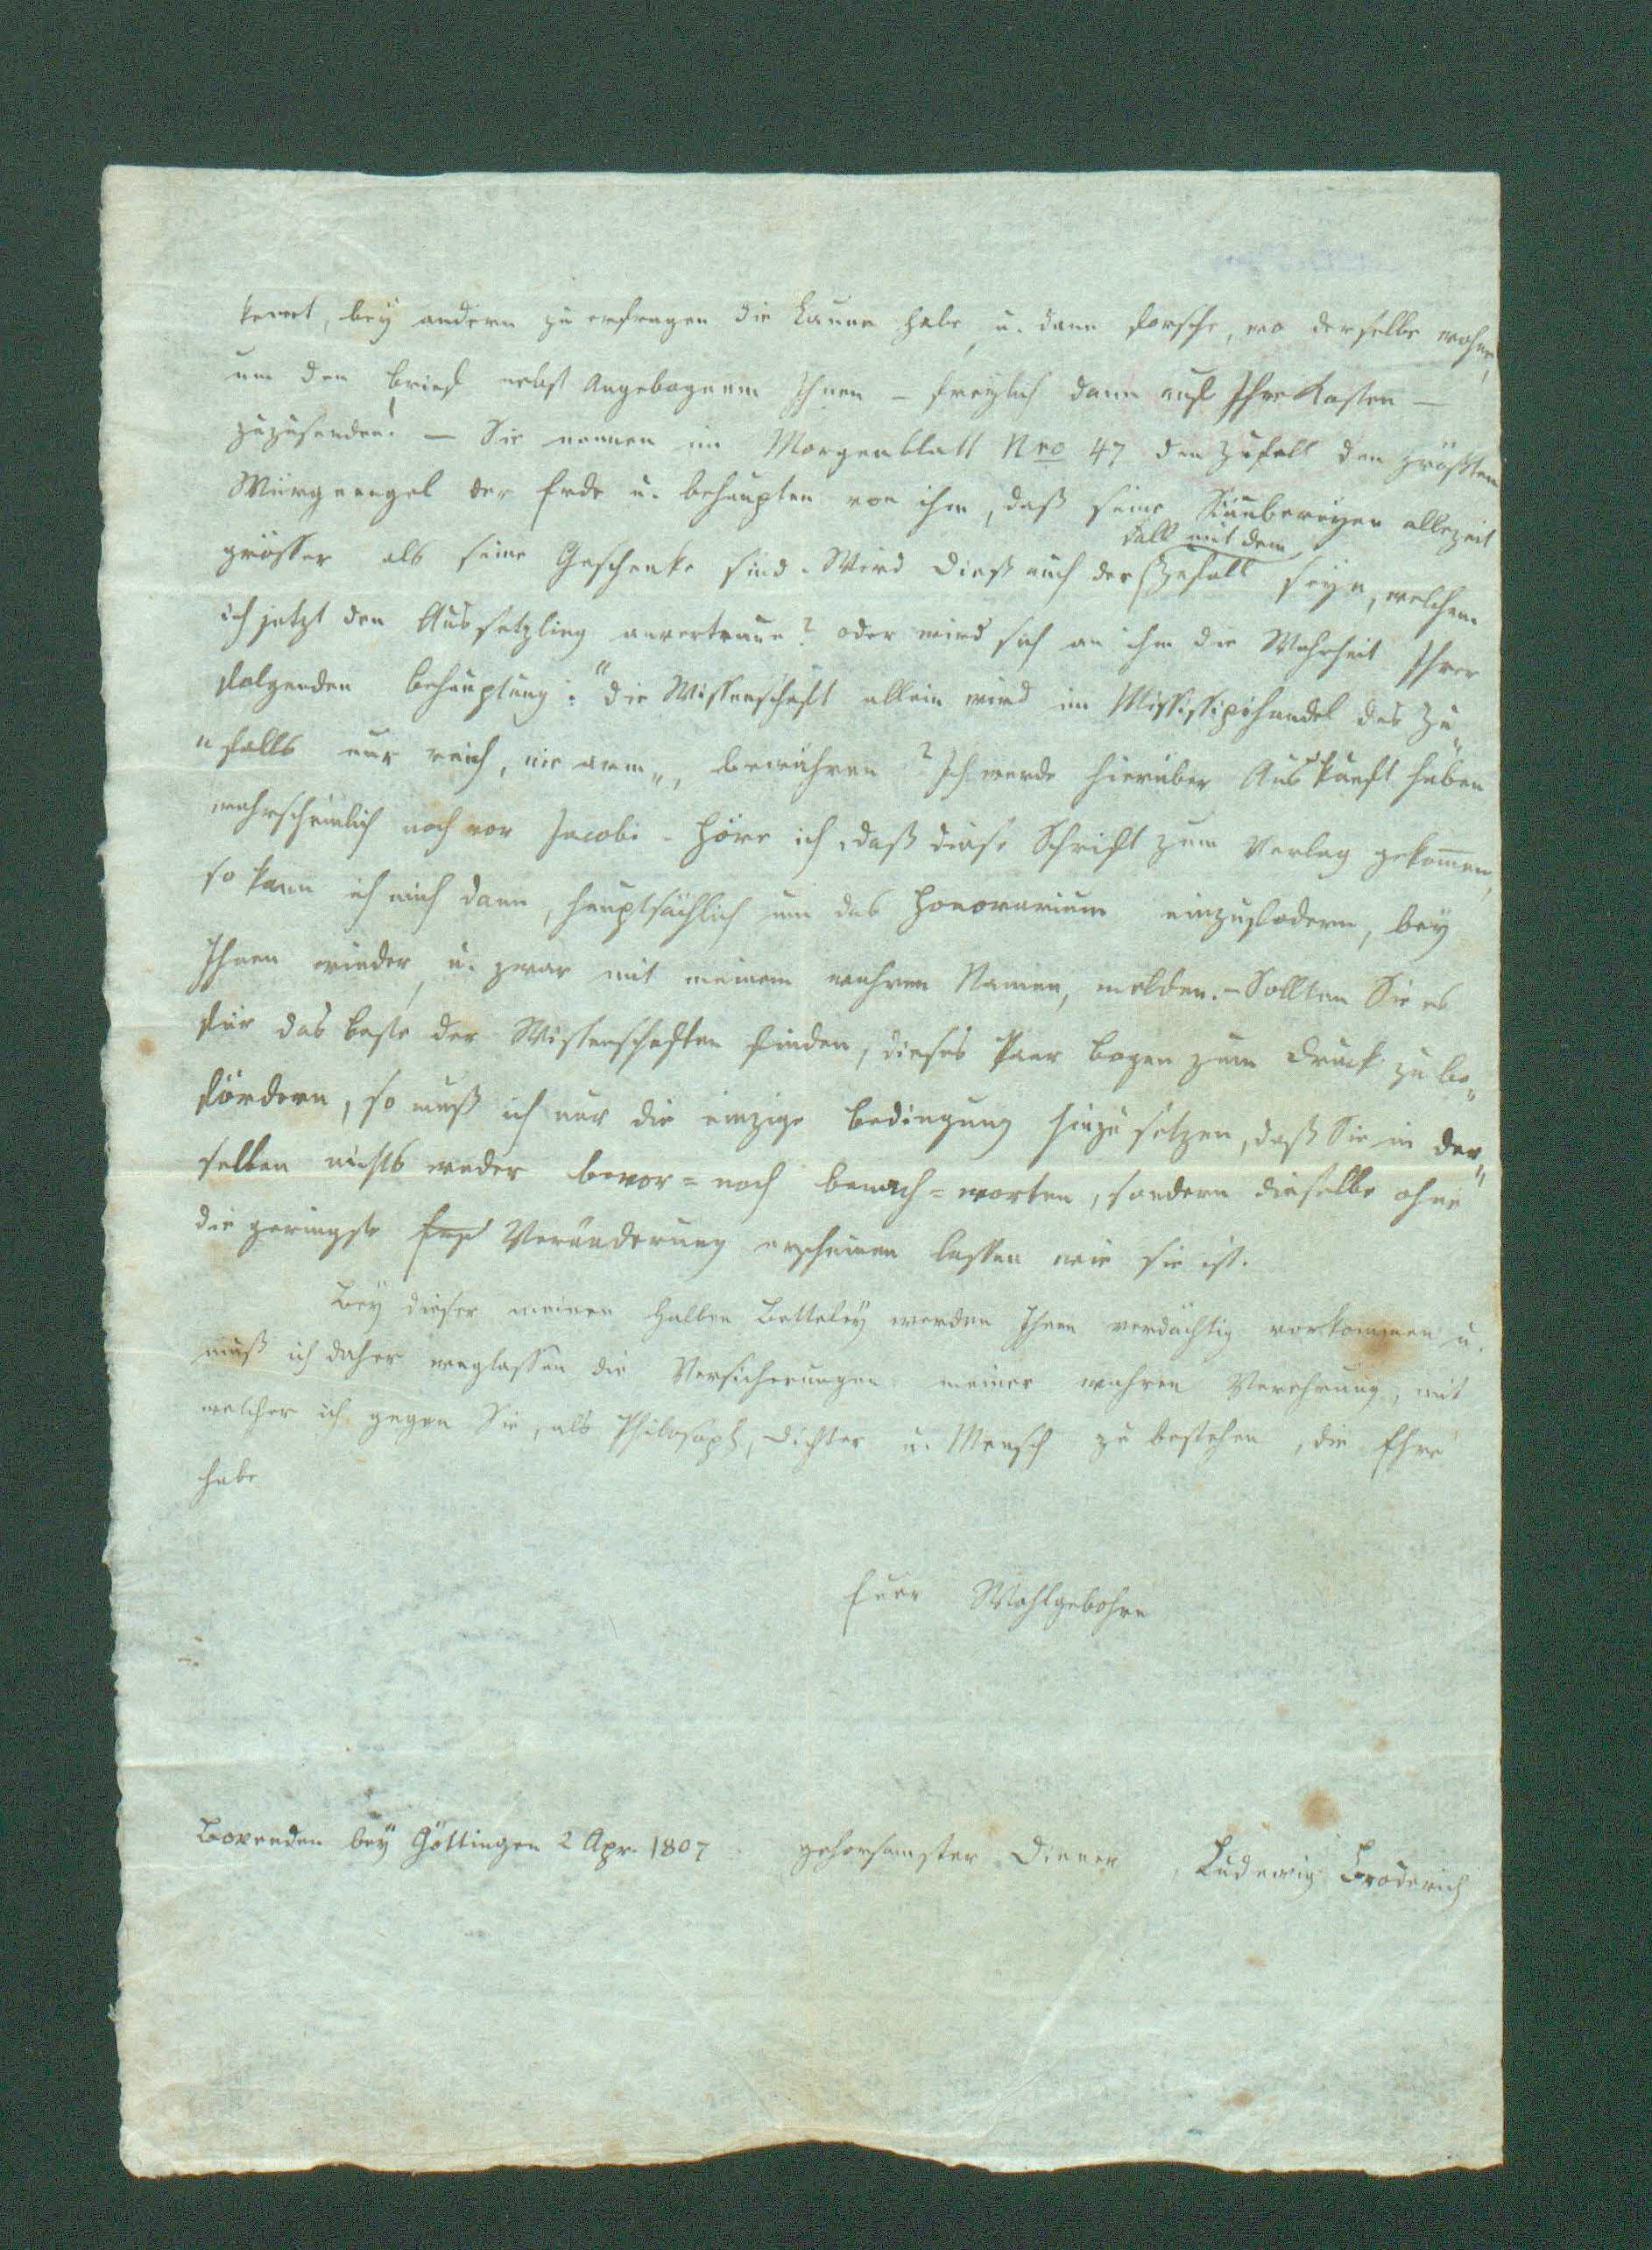 kennt, bey andern zu erfragen die Laune habe, u. dann forsche, wo derselbe wohne,
um den Brief nebst Angebognem Ihnen – freylich dann auf Ihre Kosten –
zuzusenden! – Sie nennen im Morgenblatt Nro 47 den Zufall den größten
Würgeengel der Erde u. behaupten von ihm, daß seine Räubereyen allezeit
grösser als seine Geschenke sind. Wird dieß auch der Fall mit dem Zufall seyn, welchem
ich jetzt den Aussetzling anvertraue? oder wird sich an ihm die Wahrheit Ihrer
folgenden Behauptung: "die Wissenschaft allein wird im Missisippihandel des Zu„
„falls nur reich, nie arm„, bewähren? Ich werde hierüber Auskunft haben
wahrscheinlich noch vor Jacobi. Höre ich, daß diese Schrift zum Verlag gekom̄en,
so kann ich mich dann, hauptsächlich um das Honorarium einzufodern, bey
Ihnen wieder, u. zwar mit meinem wahren Namen, melden. – Sollten Sie es
für das Beste der Wissenschaften finden, dieses Paar Bogen zum Druck zu be„
fördern, so muß ich nur die einzige Bedingung hinzu setzen, daß Sie in der„
selben nichts weder bevor= noch benach=worten, sondern dieselbe ohne
die geringste Veränderung erscheinen lassen wie sie ist.
Bey dieser meinen halben Betteley werden Ihnen verdächtig vorkommen u.
muß ich daher weglassen die Versicherungen meiner wahren Verehrung, mit
welcher ich gegen Sie, als Philosoph, Dichter u. Mensch zu bestehen, die Ehre
habe
Euer Wohlgebohrn
Bovenden bey Göttingen 2 Apr. 1807 gehorsamster Diener Ludewig Broderich